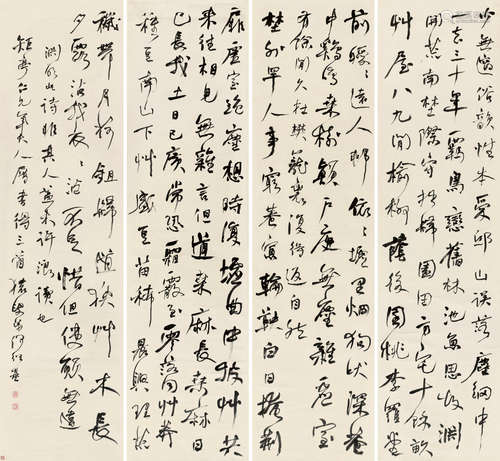 少無適俗韻性本愛邱山誤落塵網中
一去三十年羈鳥戀舊林池魚思故淵
開荒南埜際守拙歸園田方宅十餘畝
艸屋八九間榆柳蔭後園桃李羅堂
前曖曖遠人邨依依墟里烟狗吠深巷
中鷄鳴桑樹顛戶庭無塵雜虛室
有餘閒久在樊籠裏復得返自然
埜外罕人事窮巷寡輪鞅白日掩荆
扉虛室絕塵想時復墟曲中披艸共
來往相見無雜言但道桑麻長桑麻日
已長我土日已廣常恐霜霰至零落同艸莽
種豆南山下艸盛豆苗稀晨興理荒
穢帶月荷鉏歸道狹艸木長
夕露沾我衣衣沾不足惜但使願無違
淵明此詩非其人蓋未許浪讀也
仁兄大人屬書得三首猿叟何紹基